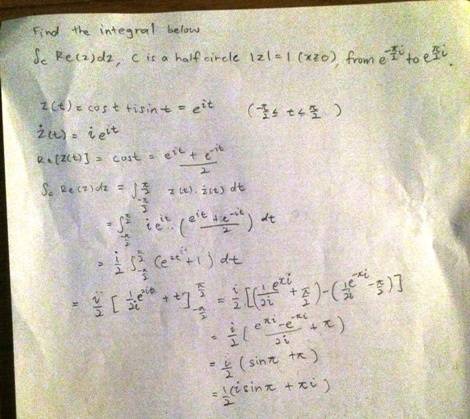 Find the integral below
∫c Re(z)dz, C is a half circle |z|=1 (x≥0), from e^{-π/2 i} to e^{π/2 i}.
z(t) = cos t + i sin t = e^{it} (-π/2 ≤ t ≤ π/2)
ż(t) = i e^{it}
Re[z(t)] = cos t = (e^{it} + e^{-it})/2
∫c Re(z)dz = ∫_{-π/2}^{π/2} z(t)·ż(t) dt
= ∫_{-π/2}^{π/2} i e^{it}·((e^{it} + e^{-it})/2) dt
= i/2 ∫_{-π/2}^{π/2} (e^{2it} + 1) dt
= i/2 [1/2i e^{2it} + t]_{-π/2}^{π/2} = i/2 [(1/2i e^{πi} + π/2) - (1/2i e^{-πi} - π/2)]
= i/2 ((e^{πi} - e^{-πi})/2i + π)
= i/2 (sin π + π)
= 1/2 (i sin π + πi)